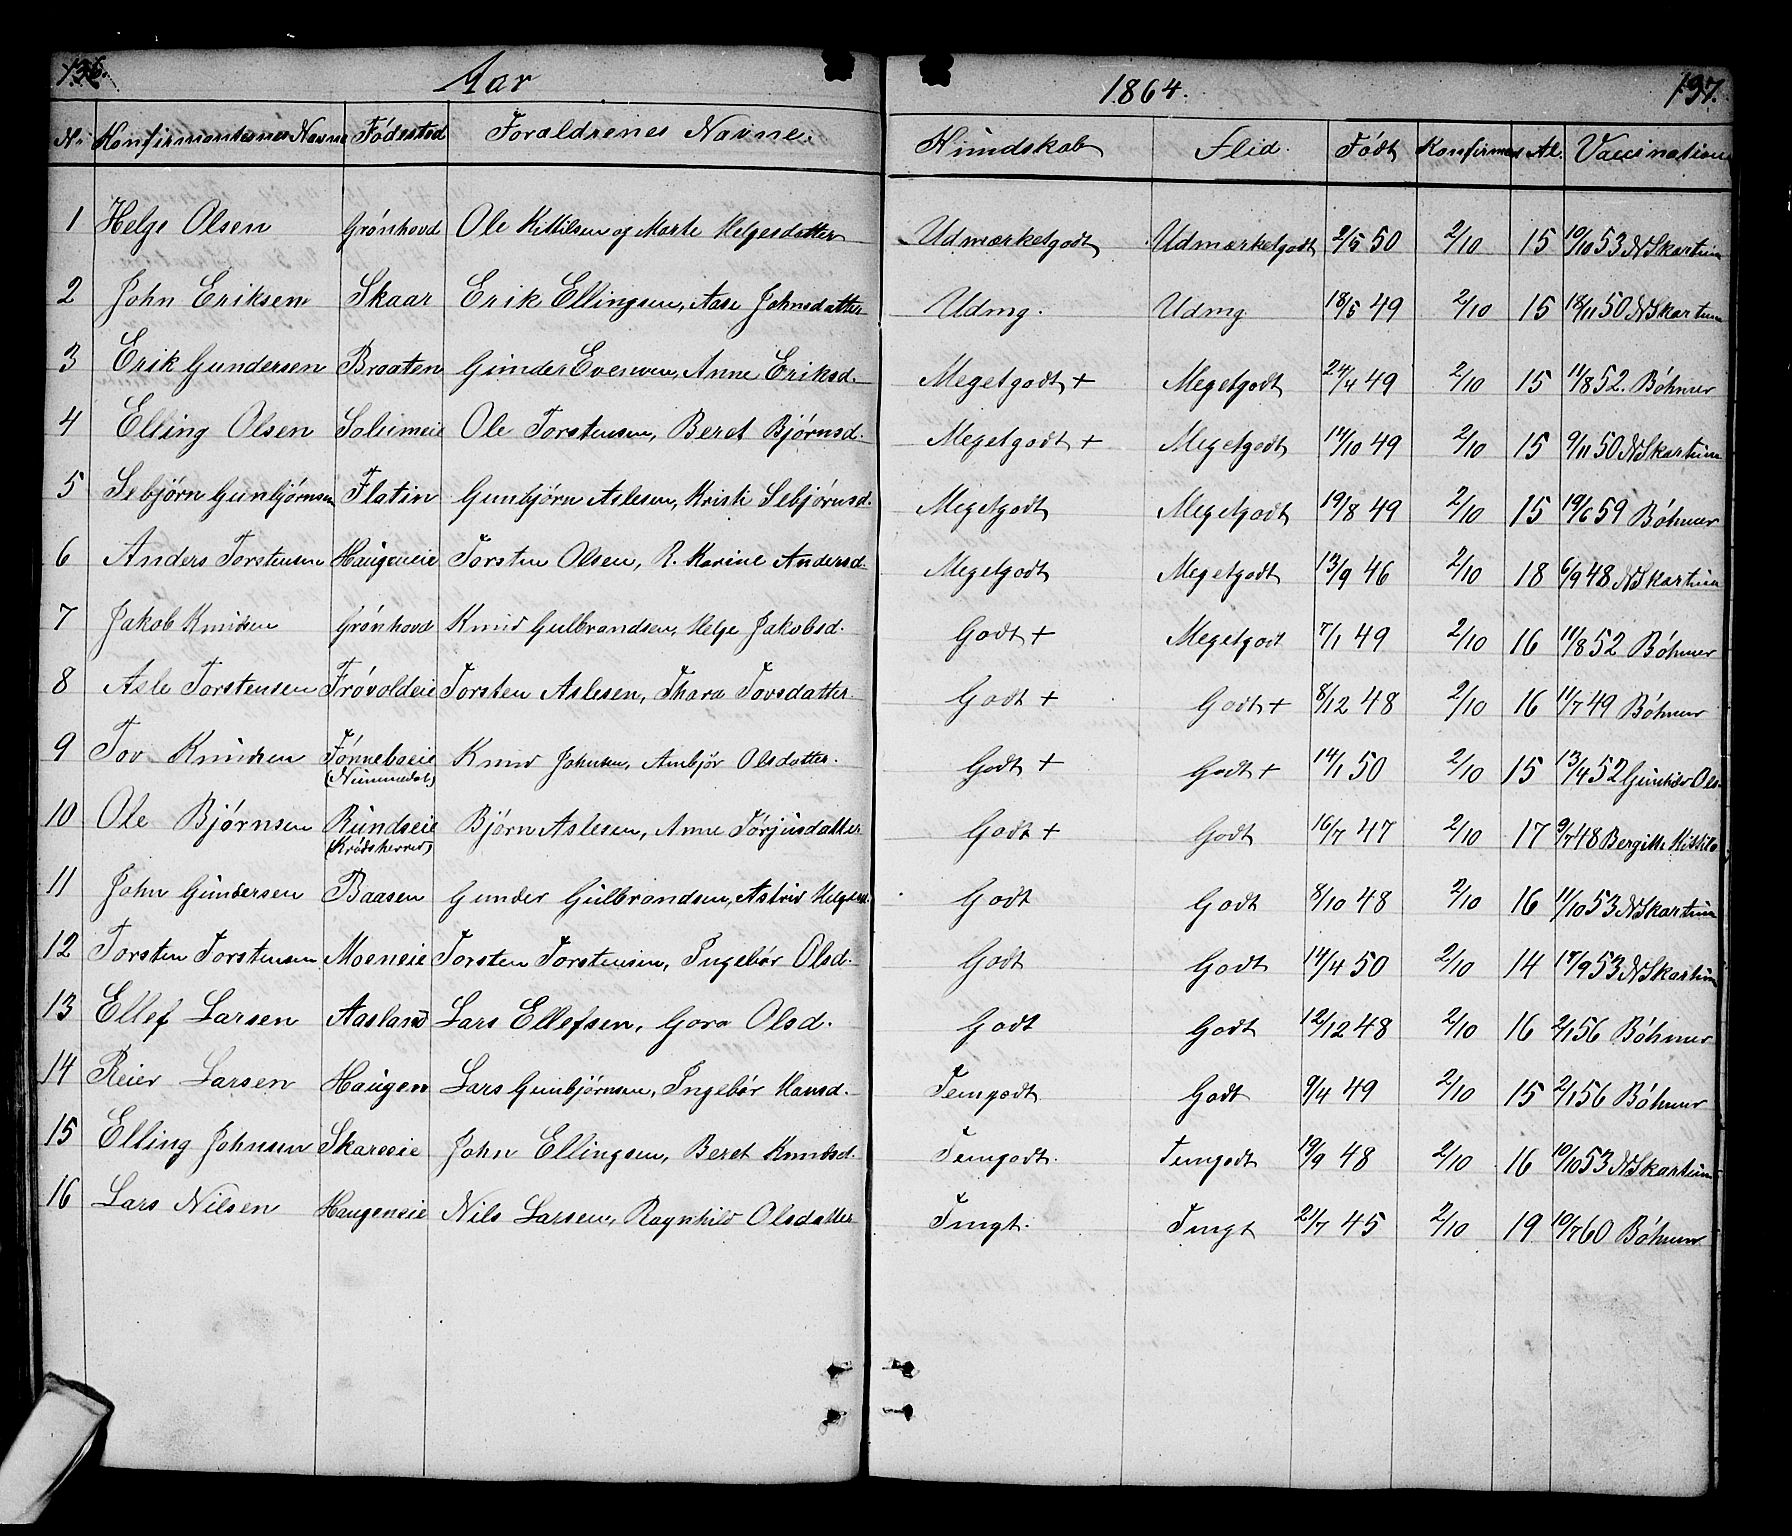 136. Aar 1864. 137.
Nr. Konfirmanternes Navne Fødested Foraldrenes Navne. Kundskab Flid. Født Konfirmed Al. Vaccination
1 Helge Olsen Grønhovd Ole Kittilsen og Marte Helgesdatter Udmærketgodt Udmærketgodt 2/5 50 2/10 15 10/10 53 N Skartum
2 John Eriksen Skaar Erik Ellingsen, Aase Johnsdatter Udmg. Udmg 18/5 49 2/10 15 18/11 50 N Skartum
3 Erik Gundersen Braaten Gunder Evensen, Anne Eriksd. Megetgodt + Megetgodt 24/4 49 2/10 15 11/8 52. Bøhmer
4 Elling Olsen Soleimeie Ole Torstensen, Beret Bjørnsd. Megetgodt + Megetgodt 14/10 49 2/10 15 9/11 50 N Skartum
5 Sebjørn Gunbjørnsen Flatin Gunbjørn Aslesen, Kristi Sebjørnsd. Megetgodt Megetgodt 19/8 49 2/10 15 19/6 59 Bøhmer
6 Anders Torstensen Haugeneie Torsten Olsen, R. Karine Andersd. Megetgodt Megetgodt 13/9 46 2/10 18 6/9 48 N Skartum
7 Jakob Knudsen Grønhovd Knud Gulbrandsen, Helge Jakobsd. Godt + Megetgodt 7/1 49 2/10 16 11/8 52 Bøhmer
8 Asle Torstensen Frøvoldeie Torsten Aslesen, Thora Tovsdatter Godt + Godt + 8/12 48 2/10 16 11/7 49 Bøhmer
9 Tov Knudsen Tønneboeie Knud Johnsen, Ambjør Olsdatter. Godt + Godt + 14/1 50 2/10 15 13/4 52 Gunhild Ols.
(Nummedal)
10 Ole Bjørnsen Rundseie Bjørn Aslesen, Anne Torjusdatter Godt + Godt 16/7 47 2/10 17 9/7 48 Bergitte
(Krødsherred)
11 John Gundersen Baasen Gunder Gulbrandsen, Astrid Helgesd. Godt Godt 8/10 48 2/10 16 11/10 53 N Skartum
12 Torsten Torstensen Moeneie Torsten Torstensen, Ingebør Olsd. Godt Godt 14/4 50 2/10 14 17/9 53 N Skartum
13 Ellef Larsen Aasland Lars Ellefsen, Gora Olsd. Godt Godt 12/12 48 2/10 16 2/1 56 Bøhmer
14 Reier Larsen Haugen Lars Gunbjørnsen, Ingebør Hansd. Temgodt Godt 9/4 49 2/10 15 2/1 56 Bøhmer
15 Elling Johnsen Skareeie John Ellingsen, Beret Knudsd. Temgodt. Temgodt 19/9 48 2/10 16 10/10 53 N Skartum
16 Lars Nilsen Haugeneie Nils Larsen, Ragnhild Olsdatter Tmgt. Tmgt 21/7 45 2/10 19 10/7 60 Bøhmer